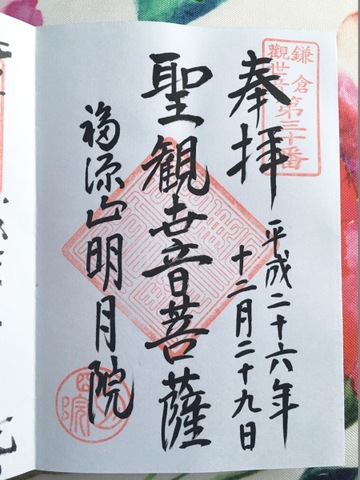 鎌倉
觀世音第三十番
奉拝
平成二十六年
十二月二十九日
聖観世音菩薩
福源山明月院